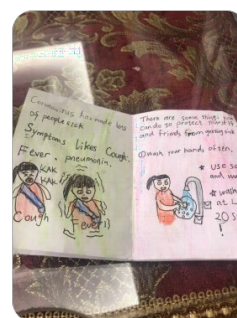 Coronavirus has made lots
of people sick
Symptoms Likes Cough,
Fever, pneumonia,
KAK
KAK
Cough
Fever
There are some things you
can do to protect
and friends from getting sick
wash your hands often.
USE
wash
at L
20 S